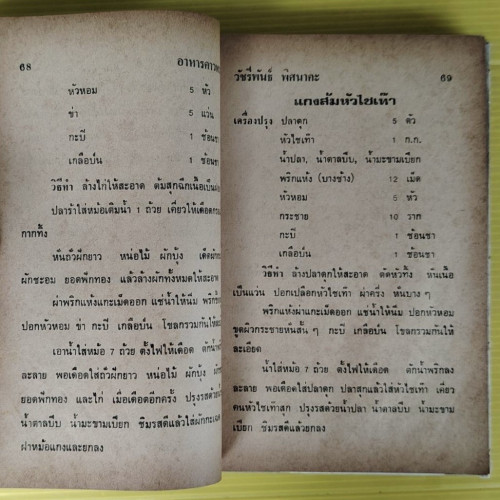 68 อาหารคาว
หัวหอม 5 หัว
ข่า 5 แว่น
กะปิ 1 ช้อนชา
เกลือป่น 1 ช้อนชา
วิธีทำ ล้างไก่ให้สะอาด ต้มสุกฉีกเนื้อเป็น
ปลาร้าใส่หม้อเติมน้ำ 1 ถ้วย เคี่ยวให้เดือด
กากทิ้ง
หั่นถั่วฝักยาว หน่อไม้ ผักบุ้ง เด็ด
ผักชะอม ยอดฟักทอง แล้วล้างผักทั้งหมดให้สะอาด
ผ่าพริกแห้งแกะเม็ดออก แช่น้ำให้นิ่ม
ปอกหัวหอม ข่า กะปิ เกลือป่น โขลกรวมกันให้
เอาน้ำใส่หม้อ 7 ถ้วย ตั้งไฟให้เดือด ตักน้ำพริก
ละลาย พอเดือดใส่ถั่วฝักยาว หน่อไม้ ผักบุ้ง
ยอดฟักทอง และไก่ เมื่อเดือดอีกครั้ง ปรุงรสด้วย
น้ำตาลปีบ น้ำมะขามเปียก ชิมรสดีแล้วใส่ผัก
ฝาหม้อแกงและยกลง
วัชรีพันธ์ พิศนาคะ 69
แกงส้มหัวไชเท้า
เครื่องปรุง ปลาดุก 5 ตัว
หัวไชเท้า 1 ก.ก.
น้ำปลา, น้ำตาลปีบ, น้ำมะขามเปียก
พริกแห้ง (บางช้าง) 12 เม็ด
หัวหอม 5 หัว
กระชาย 10 ราก
กะปิ 1 ช้อนชา
เกลือป่น 1 ช้อนชา
วิธีทำ ล้างปลาดุกให้สะอาด ตัดหัวทิ้ง หั่นเนื้อ
เป็นแว่น ปอกเปลือกหัวไชเท้า ผ่าครึ่ง หั่นบาง ๆ
พริกแห้งผ่าแกะเม็ดออก แช่น้ำให้นิ่ม ปอกหัวหอม
ขูดผิวกระชายหั่นสั้น ๆ กะปิ เกลือป่น โขลกรวมกันให้
ละเอียด
น้ำใส่หม้อ 7 ถ้วย ตั้งไฟให้เดือด ตักน้ำพริกลง
ละลาย พอเดือดใส่ปลาดุก ปลาสุกแล้วใส่หัวไชเท้า เคี่ยว
คนหัวไชเท้าสุก ปรุงรสด้วยน้ำปลา น้ำตาลปีบ น้ำมะขาม
เปียก ชิมรสดีแล้วยกลง